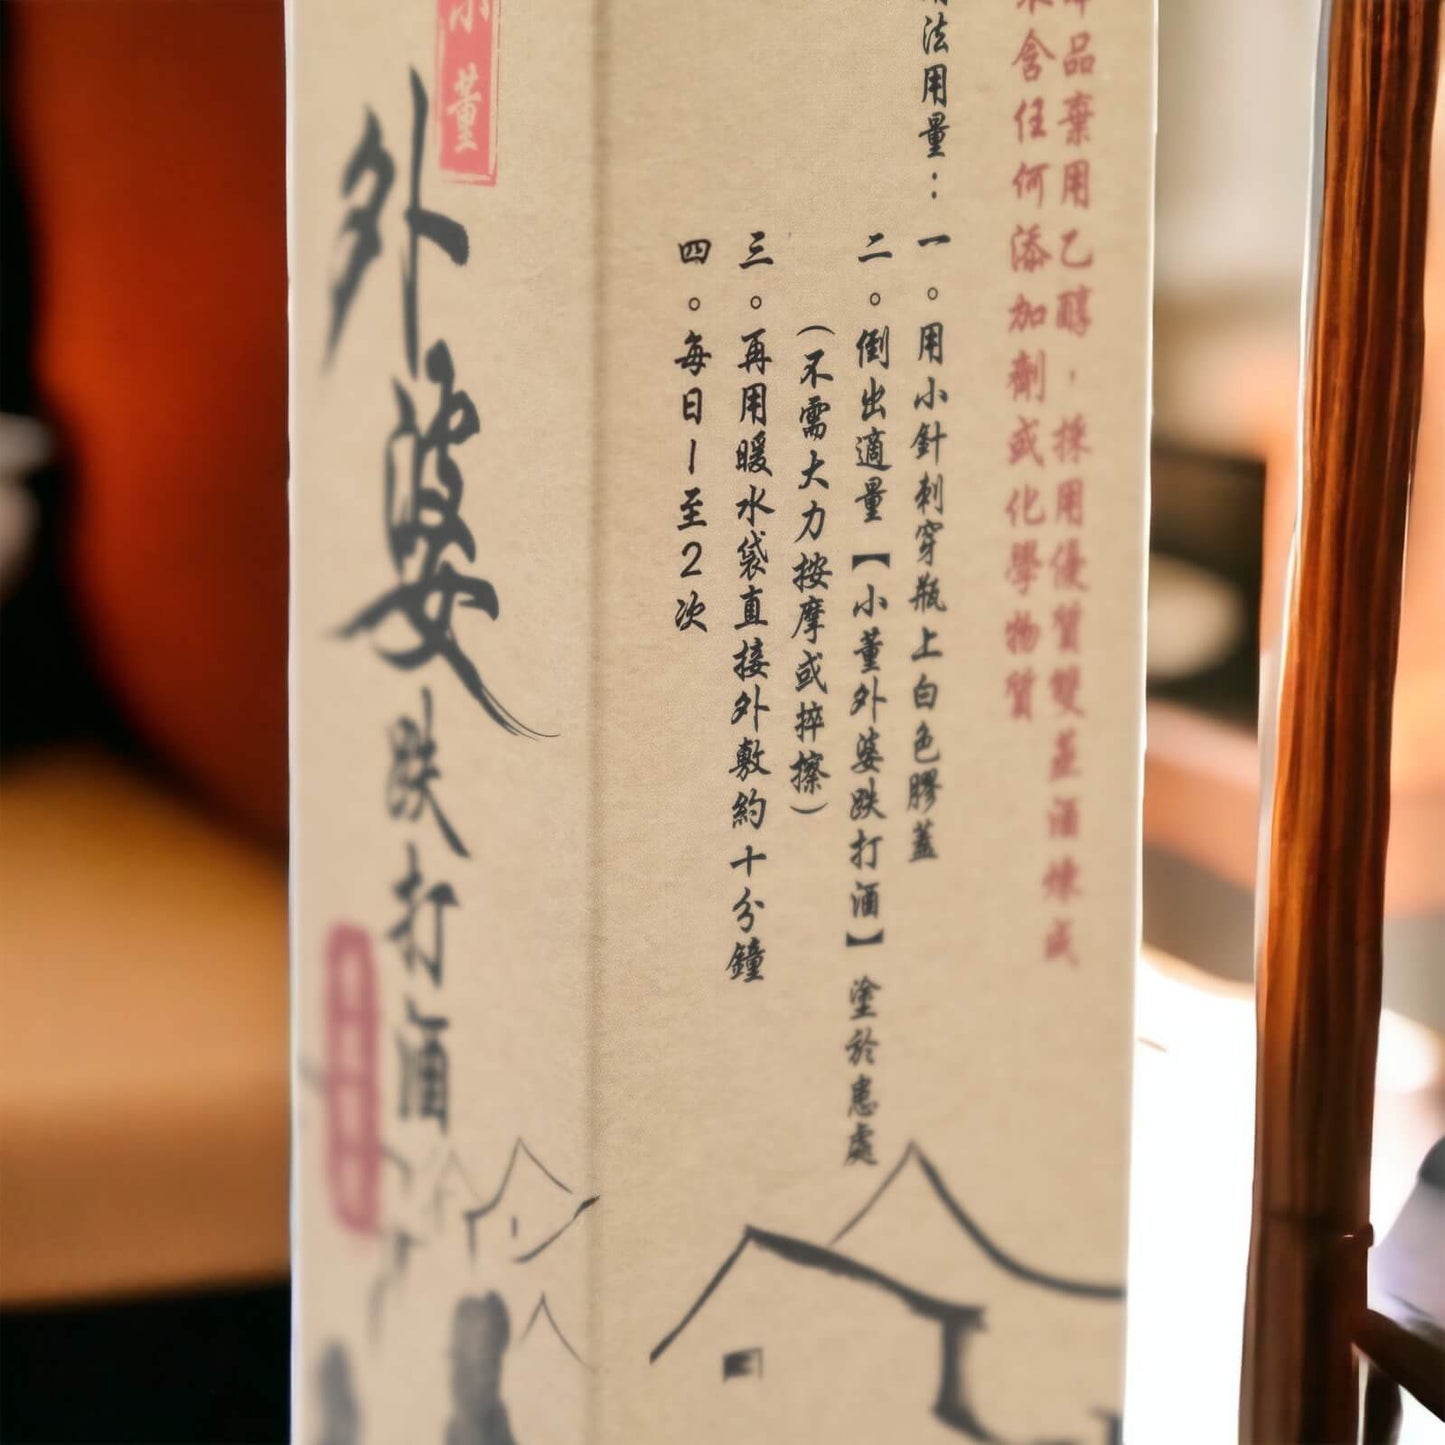 品棄用乙醇，採用優質雙蒸酒煉成
含任何添加劑或化學物質
法用量：
一。用小針刺穿瓶上白色膠蓋
二。倒出適量【小董外婆跌打酒】塗於患處
（不需大力按摩或捽擦）
三。再用暖水袋直接外敷約十分鐘
四。每日1至2次
小董
外婆跌打酒